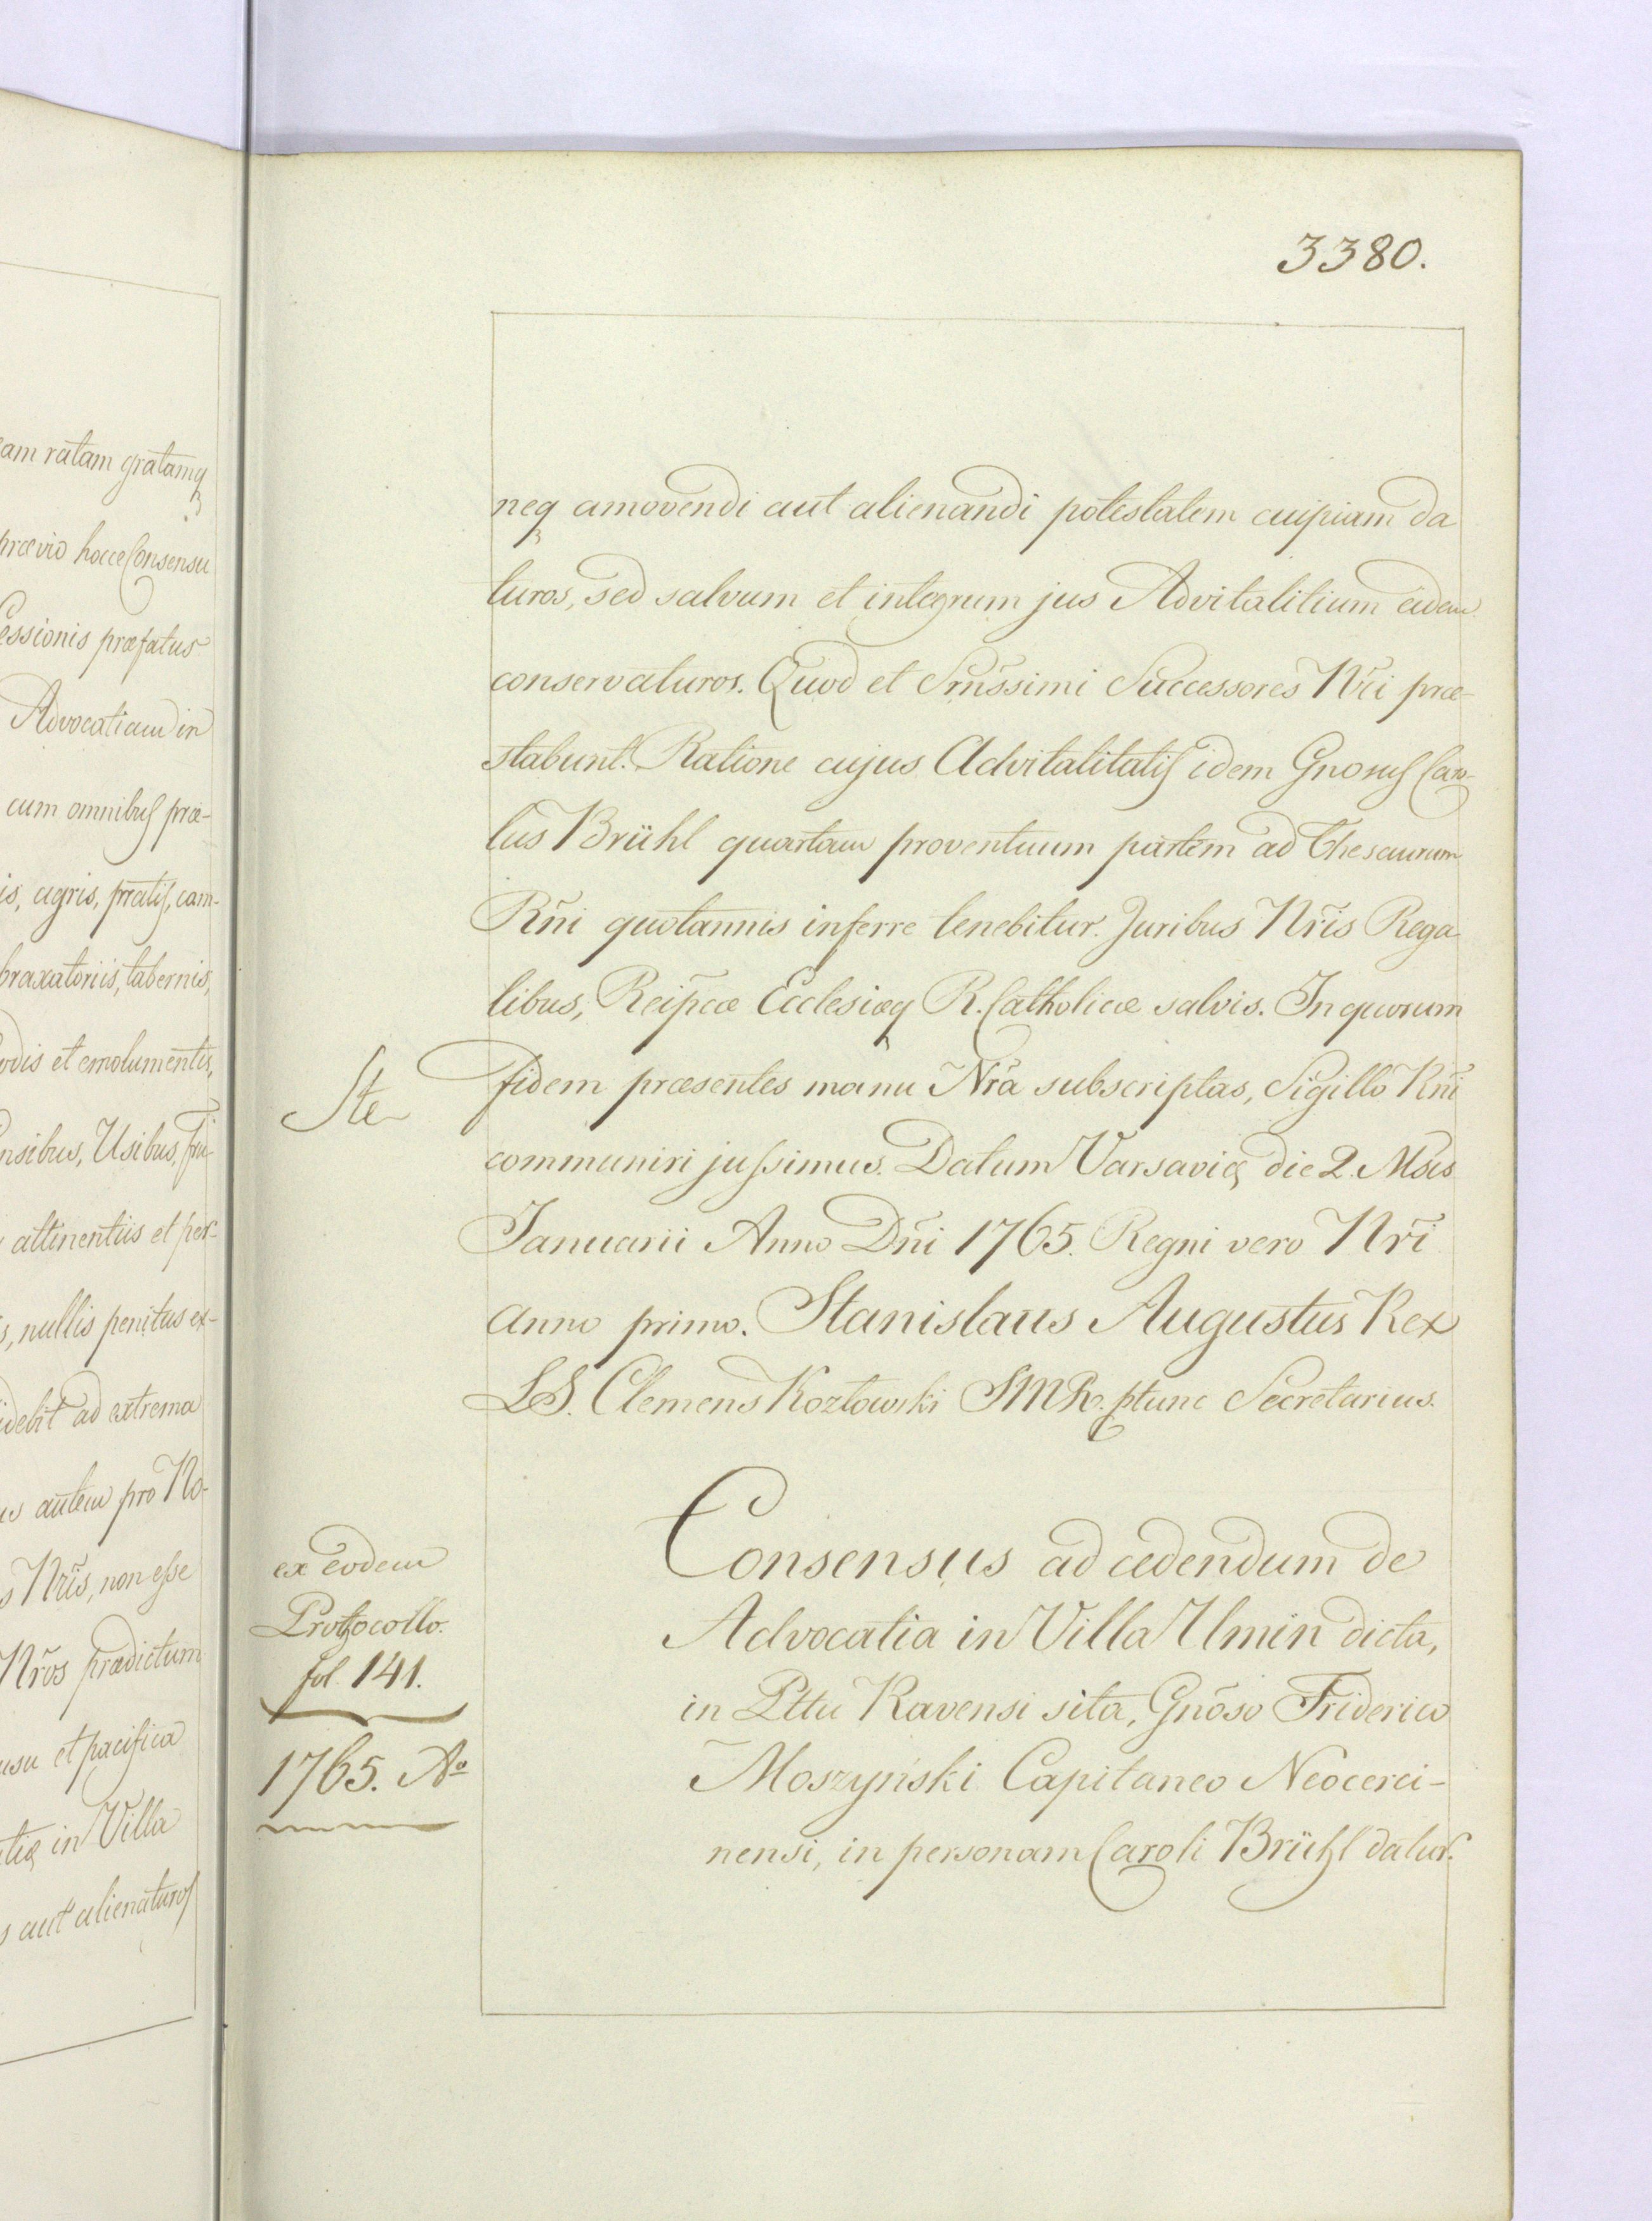 am ratam gratamq
prævio hocce Consensu
essionis præfatus
Advocatiam in
cum omnibus præ-
is, agris, pratis, cam-
braxatoriis, tabernis,
odis et emolumentis,
nsibus, Usibus, fru-
attinentiis et per-
s, nullis penitus ex-
idebit ad extrema
us autem pro No-
s Nr̃is, non esse
Nr̃os prædictum
usu et pacifica
tiæ in Villa
s aut alienaturos
3380.
neq amovendi aut alienandi potestatem cuipiam da
turos, sed salvum et integrum jus Advitalitium eidem
conservaturos. Quod et Srñssimi Successores Nr̃i præ-
stabunt. Ratione cujus Advitalitatis idem Gnosus Caro-
lus Brühl quartam proventuum partem ad Thesaurum
Rñi quotannis inferre tenebitur. Juribus Nr̃is Rega
libus, Reip̃cæ Ecclesiæq R. Catholicæ salvis. In quorum
Ste
fidem præsentes manu Nr̃a subscriptas, Sigillo Rñi
communiri jussimus. Datum Varsaviæ die 2. Msis
Januarii Anno Dñi 1765. Regni vero Nr̃i
anno primo. Stanislaus Augustus Rex
LS. Clemens Kozłowski SMR. ptunc Secretarius.
ex eodem
Protocollo.
fol. 141.
1765. Aº
Consensus ad cedendum de
Advocatia in Villa Umin dicta,
in Pttu Ravensi sita, Gnõso Friderico
Moszyński Capitaneo Neocerci-
nensi, in personam Caroli Brühl datur.